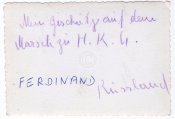 Mein Geschütz auf dem
Marsch zu H.K.L.
FERDINAND
Russland